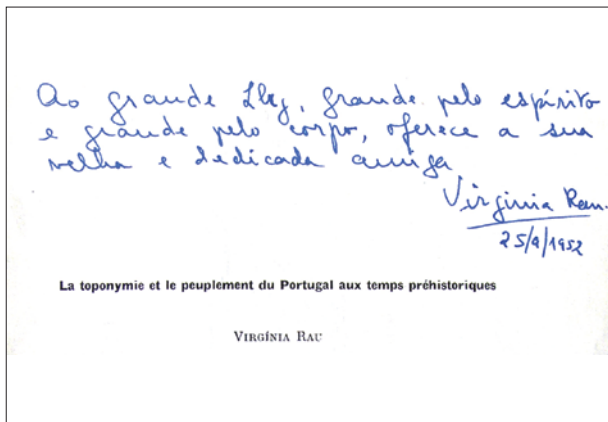 Ao grande Lhz, grande pelo espírito
e grande pelo corpo, oferece a sua
velha e dedicada amiga
Virginia Rau.
25/9/1952
La toponymie et le peuplement du Portugal aux temps préhistoriques
VIRGÍNIA RAU